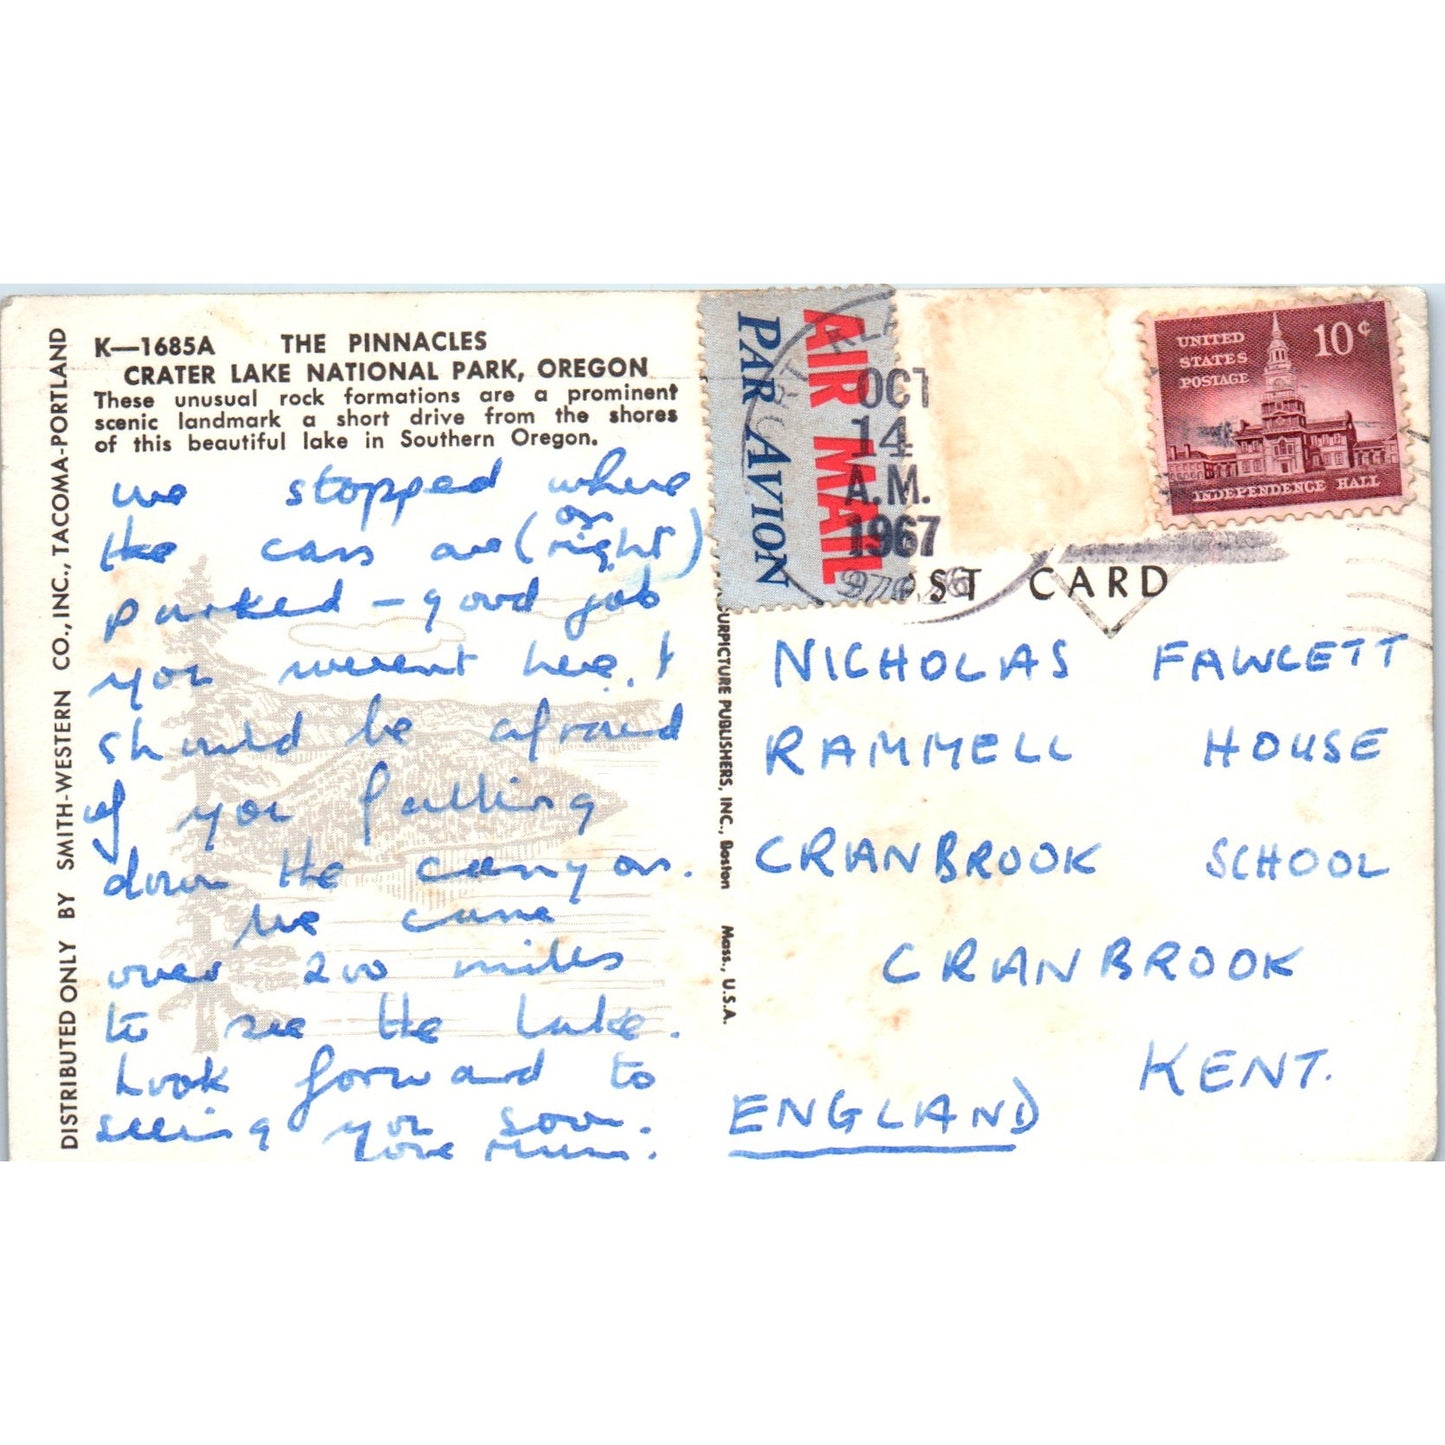 K—1685A THE PINNACLES
CRATER LAKE NATIONAL PARK, OREGON
These unusual rock formations are a prominent
scenic landmark a short drive from the shores
of this beautiful lake in Southern Oregon.
we stopped where
the cars are (on right)
parked – good job
you weren't here. I
should be afraid
of you falling
down the canyon.
We came
over 200 miles
to see the Lake.
Look forward to
seeing you soon.
Love Mum.
DISTRIBUTED ONLY BY SMITH-WESTERN CO., INC., TACOMA-PORTLAND
URPICTURE PUBLISHERS, INC., Boston Mass., U.S.A.
AIR MAIL
PAR AVION
OCT
14
A.M.
1967
UNITED
STATES
POSTAGE
10¢
INDEPENDENCE HALL
ST CARD
NICHOLAS FAWCETT
RAMMELL HOUSE
CRANBROOK SCHOOL
CRANBROOK
KENT.
ENGLAND